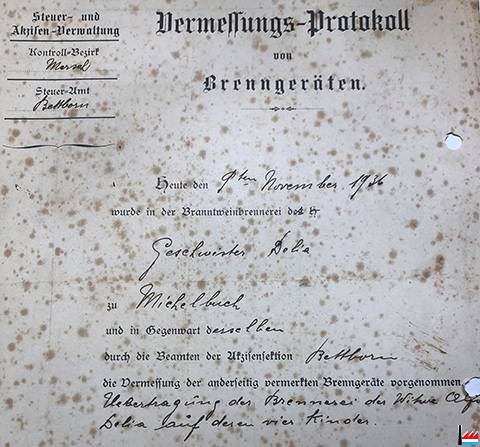 Steuer- und
Akzisen-Verwaltung
Kontroll-Bezirk
Mersch
Steuer-Amt
Bettborn
Vermessungs-Protokoll
von
Brenngeräten.
Heute den 9ten November 1936
wurde in der Branntweinbrennerei der
Geschwister Delia
zu Michelbuch
und in Gegenwart derselben
durch die Beamten der Akzisensektion Bettborn
die Vermessung der anderseitig vermerkten Brenngeräte vorgenommen
Uebertragung der Brennerei der Witwe
Delia auf deren vier Kinder.